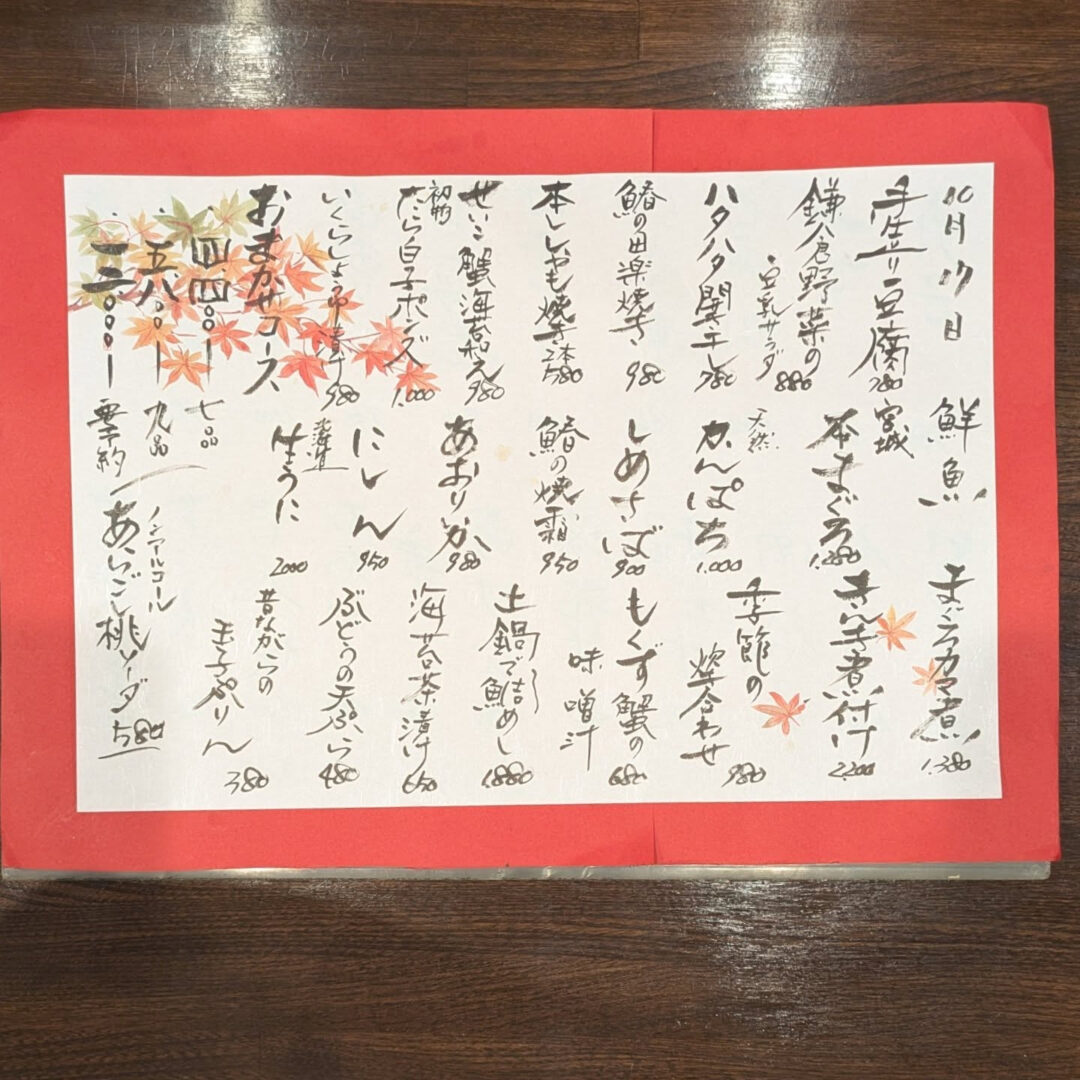 10月17日
手造り豆腐 780
鎌倉野菜の
豆乳サラダ 880
ハタハタ開干し 780
鰆の田楽焼き 980
本ししゃも焼き 2本 580
せいこ蟹海苔和え 980
初物
たら白子ポンズ 1.000
いくらしょう油漬け 980
おまかせコース
四.四〇〇ー 七品
五.八〇〇ー 九品
一二.〇〇〇ー 要予約
鮮魚
宮城
本まぐろ 1.280
天然
かんぱち 1.000
しめさば 900
鰆の焼霜 950
あおりいか 980
にしん 950
北海道
生うに 2000
まぐろカマ煮 1.380
きんき煮付け 2.200
季節の
炊合わせ 980
もくず蟹の
味噌汁 680
土鍋で鯛めし 1.880
海苔茶漬け 650
ぶどうの天ぷら 480
昔ながらの
玉子ぷりん 380
ノンアルコール
あらごし桃ソーダ 580